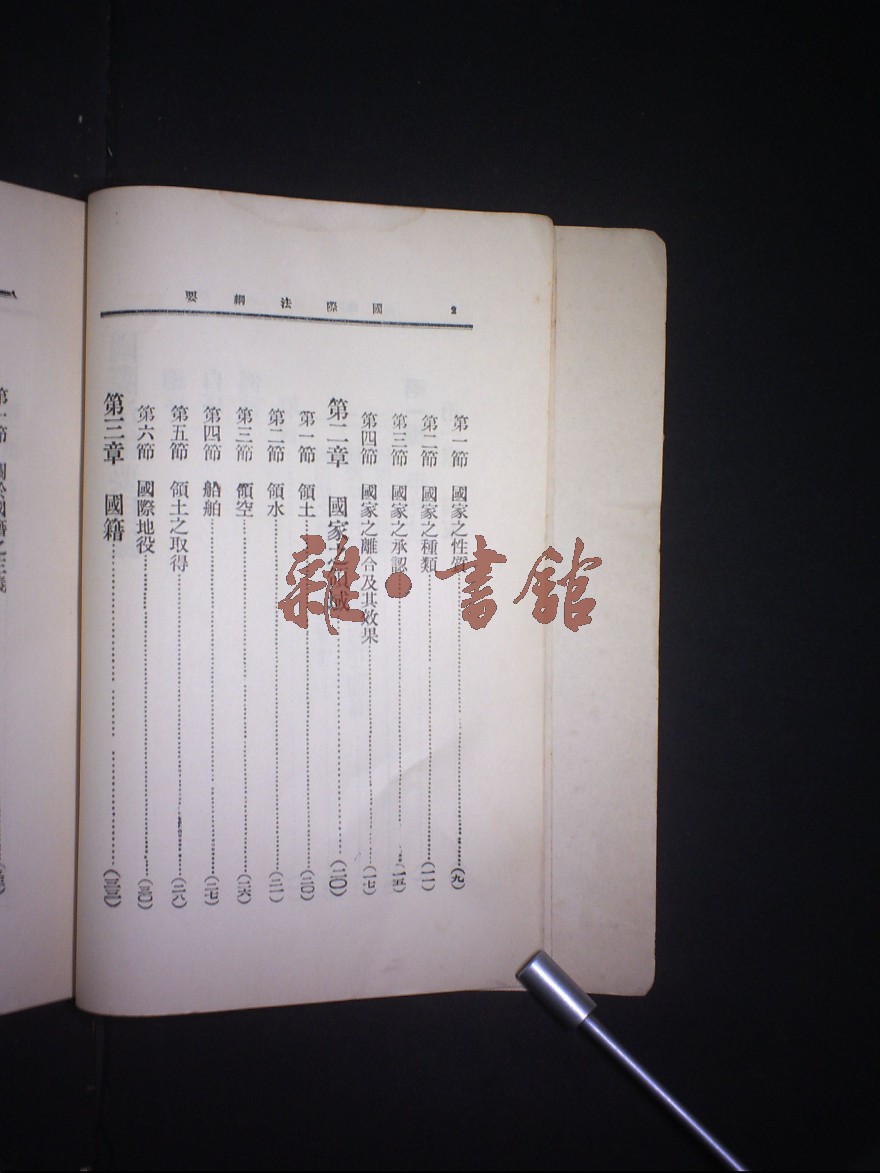 國際法綱要 2
第一節 國家之性質 (九)
第二節 國家之種類 (一一)
第三節 國家之承認 (一五)
第四節 國家之離合及其效果 (一七)
第二章 國家之領域 (二〇)
第一節 領土 (二〇)
第二節 領水 (二一)
第三節 領空 (二六)
第四節 船舶 (二七)
第五節 領土之取得 (二八)
第六節 國際地役 (三〇)
第三章 國籍 (三三)
雜·書館